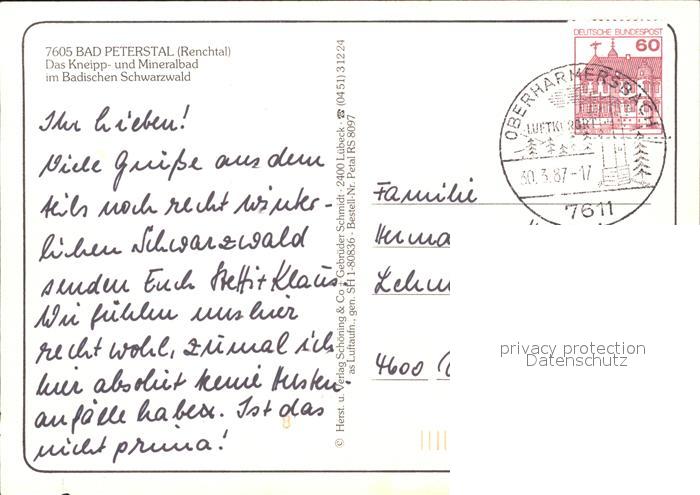 7605 BAD PETERSTAL (Renchtal)
Das Kneipp- und Mineralbad
im Badischen Schwarzwald
Ihr Lieben!
Viele Grüße aus dem
teils noch recht winter-
lichen Schwarzwald
senden Euch + Klaus.
Wir fühlen uns hier
recht wohl, zumal ich
hier absolut keine Husten-
anfälle habe. Ist das
nicht prima!
© Herst. u. Verlag Schöning & Co + Gebrüder Schmidt · 2400 Lübeck · ☎ (0451) 31224
as Luftaufn., gen. SH 1-80836 · Bestell-Nr. Petal RS 8097
DEUTSCHE BUNDESPOST
60
OBERHARMERSBACH
LUFTKURORT
30.3.87-17
7611
Familie
Herma
Lehm
4600
privacy protection
Datenschutz